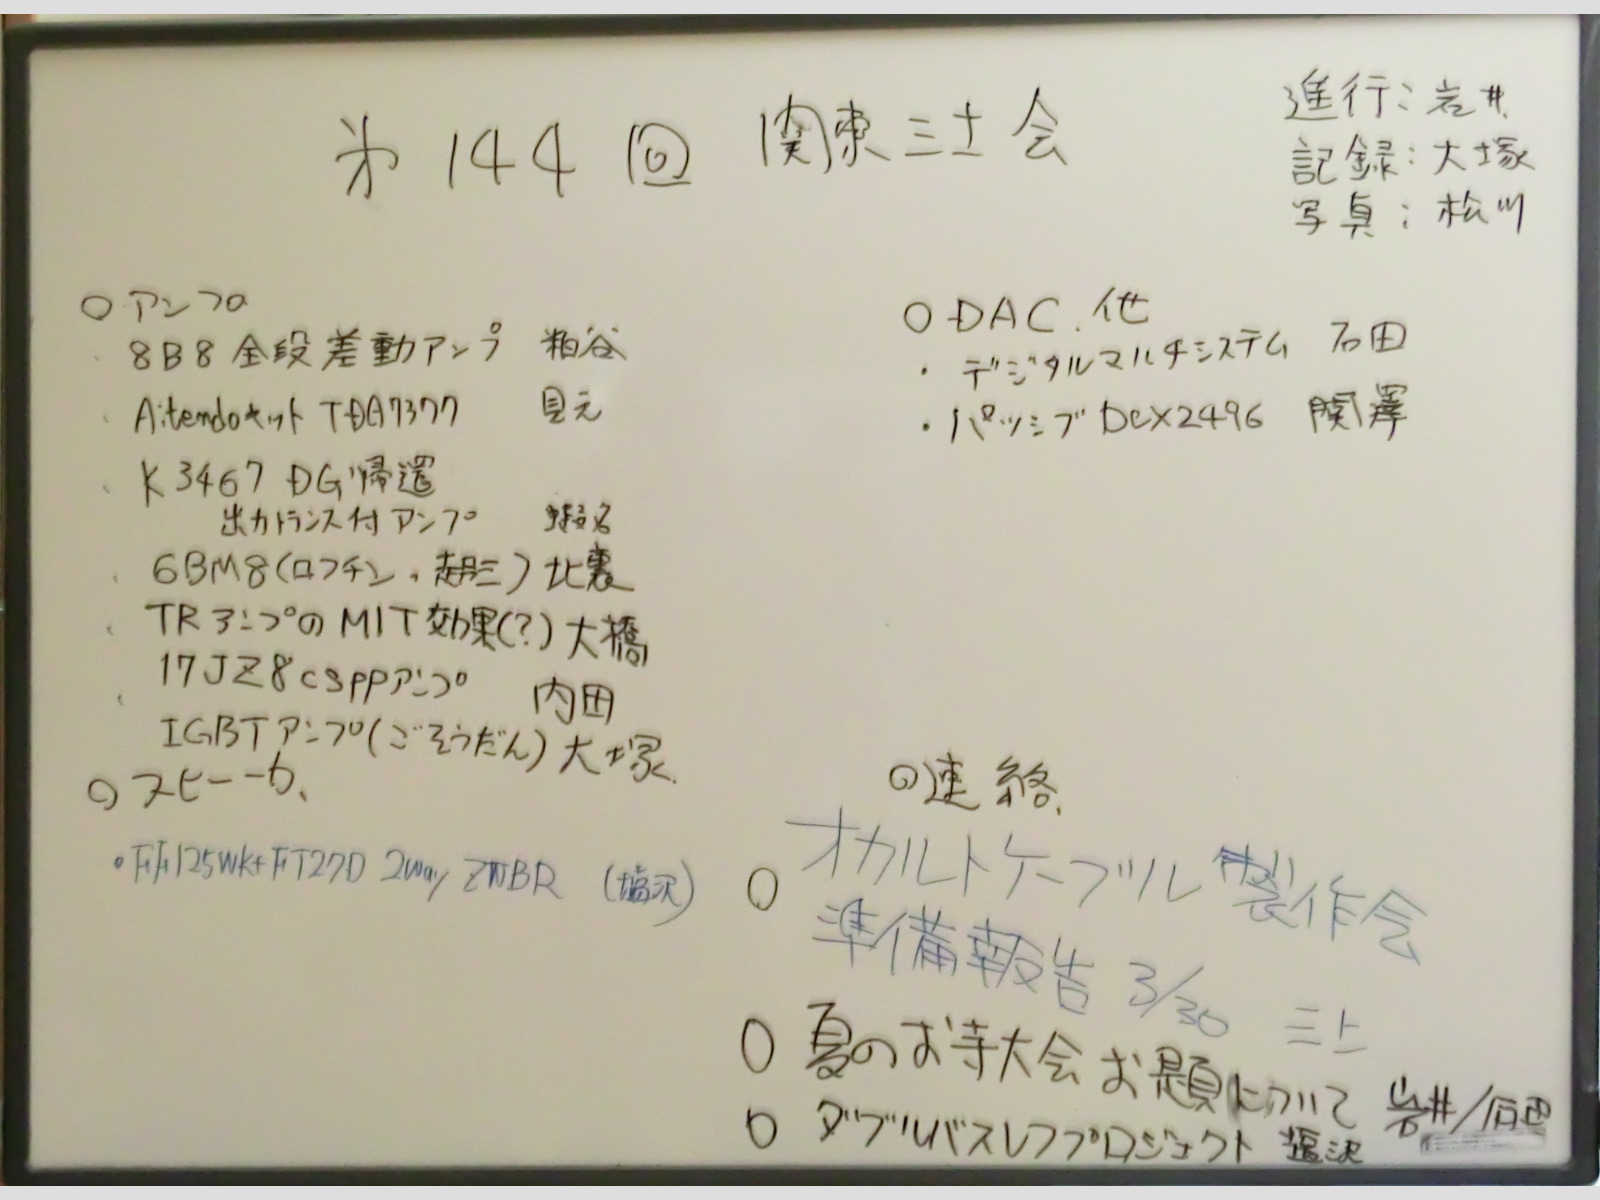 第144回 関東三土会
進行：岩井
記録：大塚
写真：松川
○ アンプ
・8B8 全段差動アンプ 粕谷
・Aitendoキット TDA7377 見元
・K3467 DG帰還
出力トランス付アンプ 蝦名
・6BM8(ロフチン, 超三) 北裏
・TRアンプのMIT効果(?) 大橋
・17JZ8csppアンプ 内田
IGBTアンプ(ごそうだん) 大塚
○ スピーカ
・FF125WK+FT27D 2way ZWBR (塩沢)
○ DAC. 他
・デジタルマルチシステム 石田
・パッシブDCX2496 関澤
○ 連絡
○ オカルトケーブル製作会
準備報告 3/30 三上
○ 夏のお寺大会お題について 岩井/石田
○ ダブルバスレフプロジェクト 塩沢